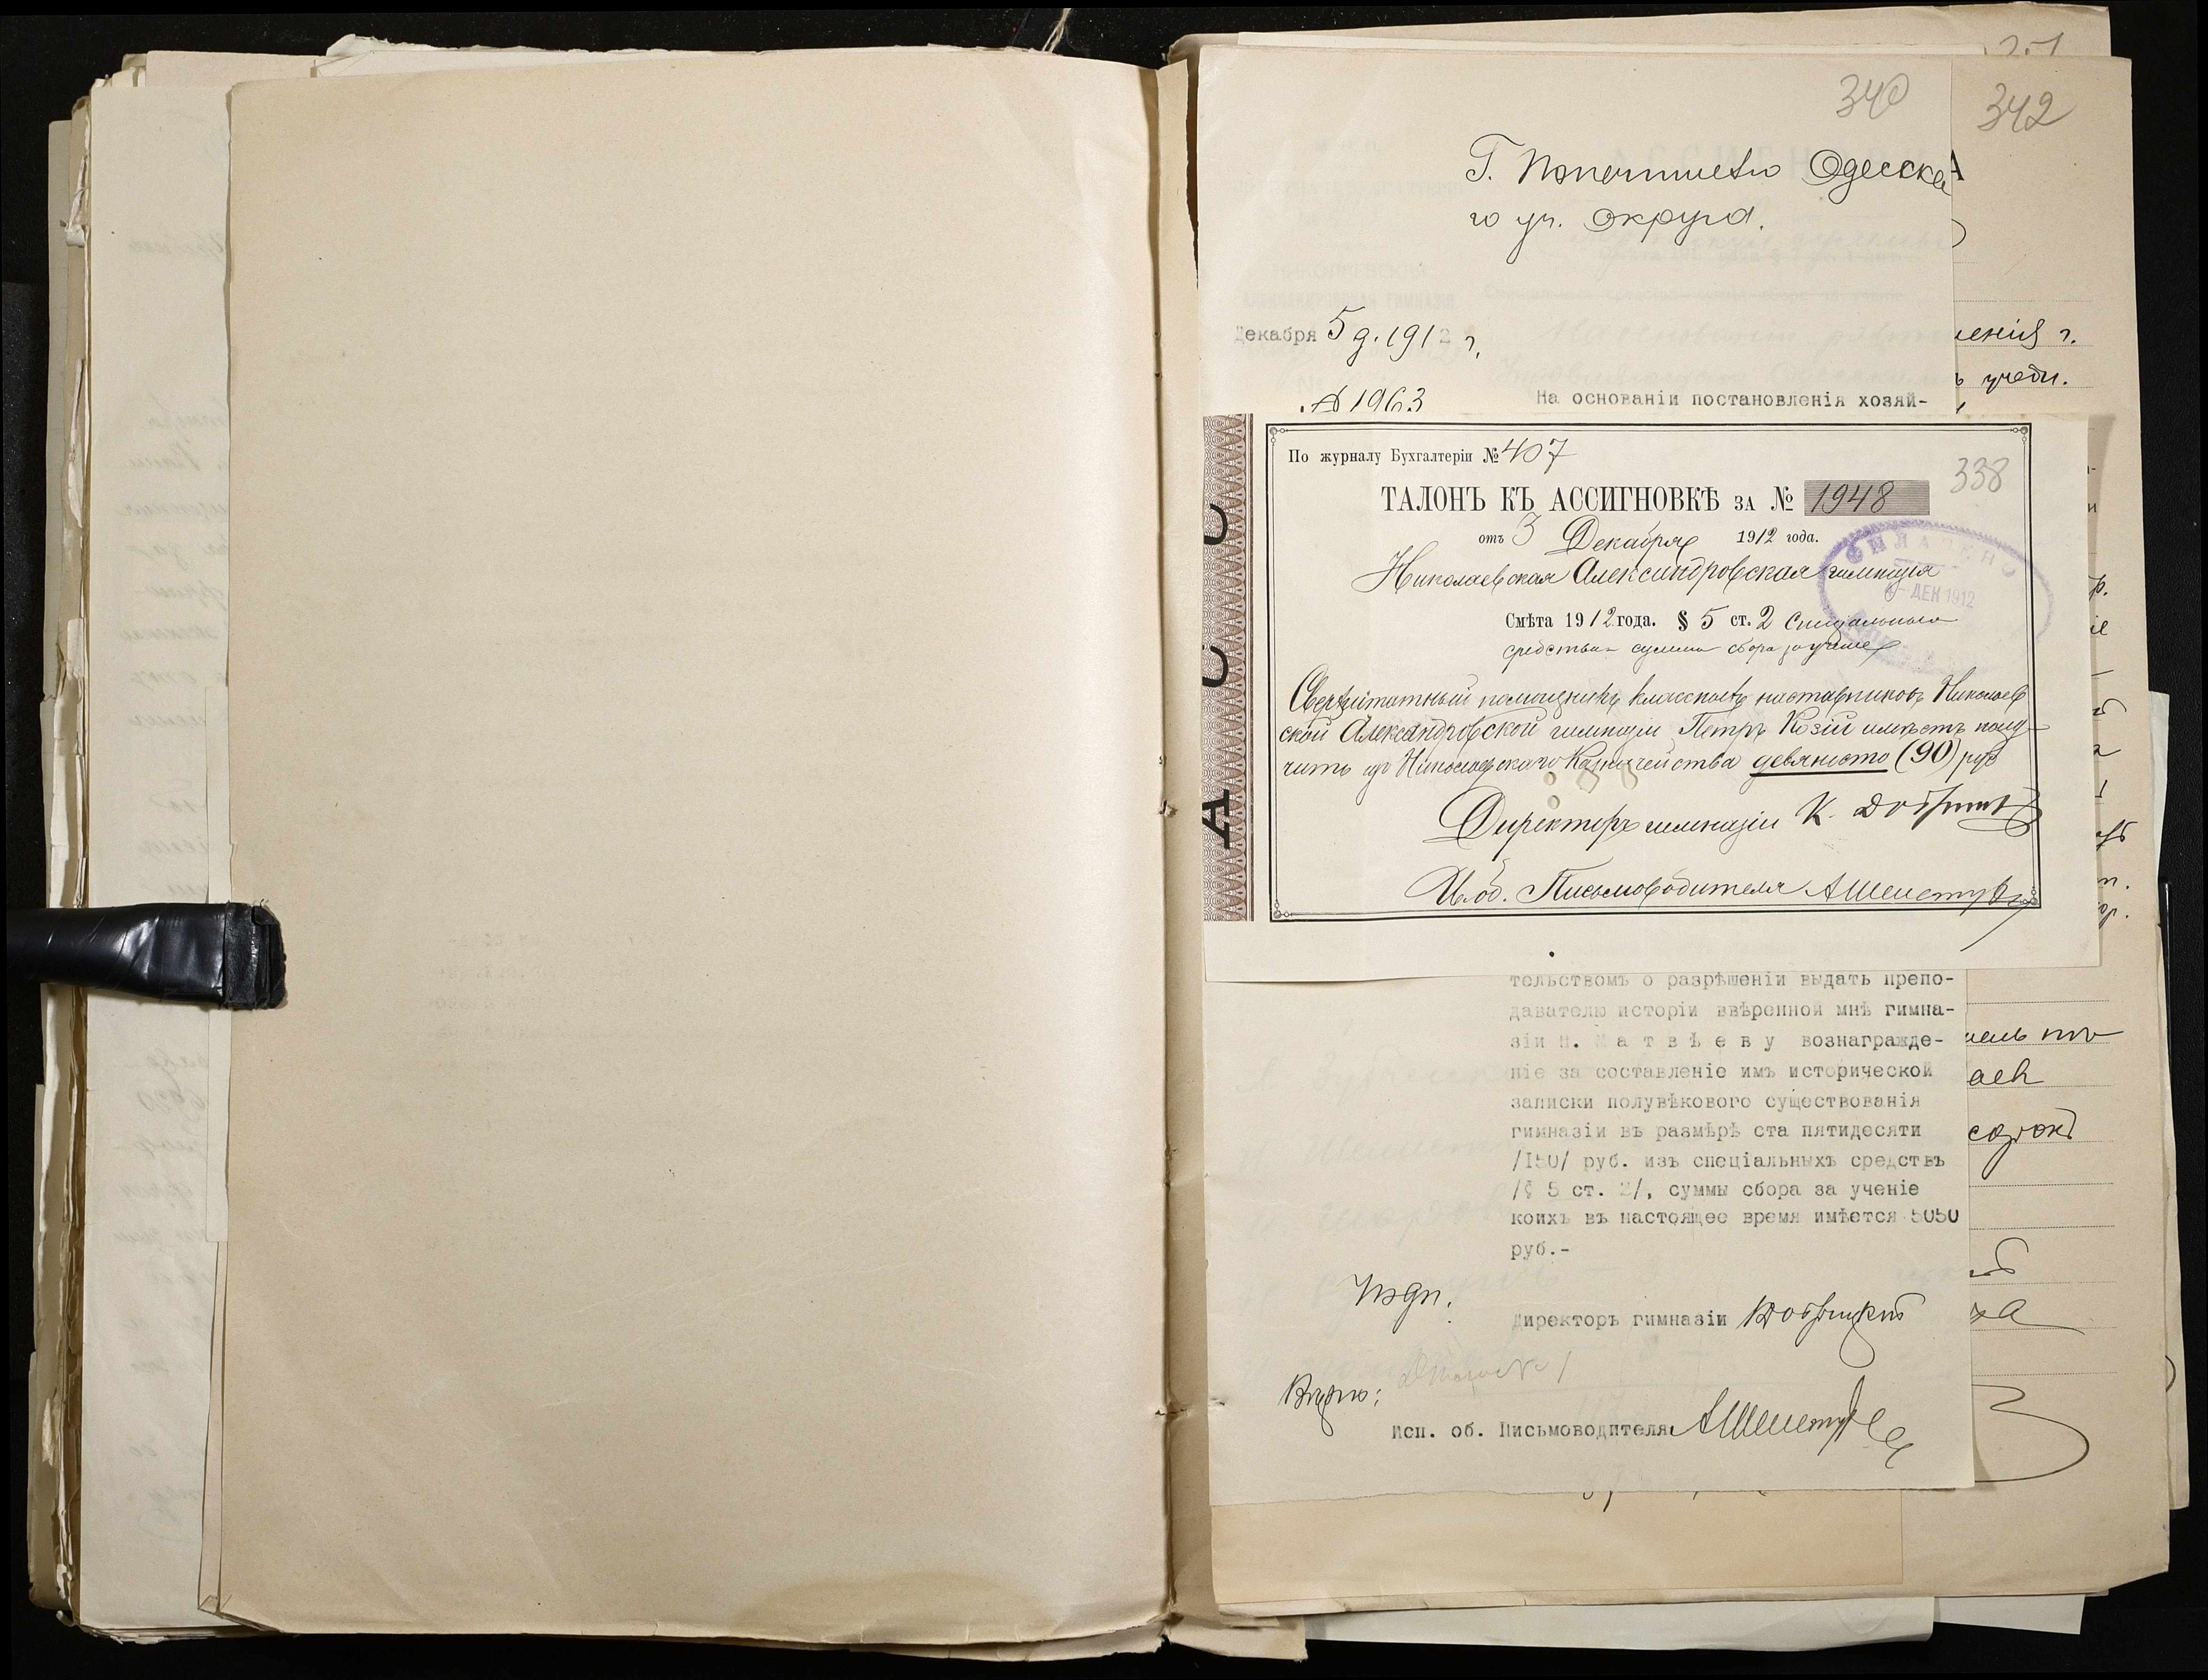 340
342
Г. Попечителю Одесска
го уч. округа.
Декабря 5 д. 1912 г.
№ 1963
На основаніи постановленія хозяй-
По журналу Бухгалтеріи № 407
338
ТАЛОНЪ КЪ АССИГНОВКѢ ЗА № 1948
отъ 3 Декабря 1912 года.
Николаевская Александровская гимназія
Смѣта 1912 года. § 5 ст. 2 Спеціальныя
средства суммы сбора за ученіе
Сверхштатный помощникъ классныхъ наставниковъ Николаев
ской Александровской гимназіи Петръ Козій имѣетъ полу-
чить изъ Николаевскаго Казначейства девяносто (90) руб
Директоръ гимназіи К.
И. об. Письмоводителя
ДЕК 1912
тельствомъ о разрѣшеніи выдать препо-
давателю исторіи ввѣренной мнѣ гимна-
зіи Н. М а т в ѣ е в у вознагражде-
ніе за составленіе имъ исторической
записки полувѣкового существованія
гимназіи въ размѣрѣ ста пятидесяти
/150/ руб. изъ спеціальныхъ средствъ
/§ 5 ст. 2/, суммы сбора за ученіе
коихъ въ настоящее время имѣется 5050
руб.-
Подп.
Директоръ гимназіи
Вѣрно:
Исп. об. Письмоводителя